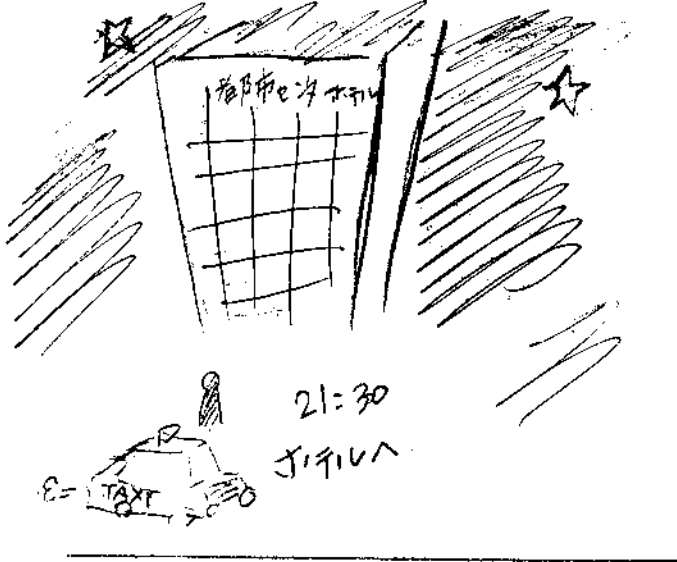 都市センタ ホテル
21:30
ホテルへ
TAXI